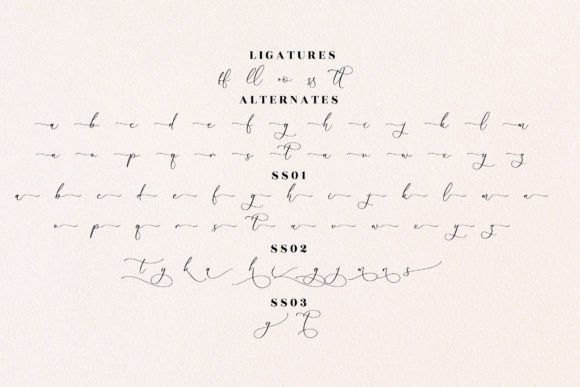 LIGATURES
ff ll oo ss tt
ALTERNATES
a b c d e f g h i j k l m
n o p q r s t u v w x y z
SS01
a b c d e f g h i j k l m n
o p q r s t u v w x y z
SS02
t y k a h i g j m n s
SS03
y t